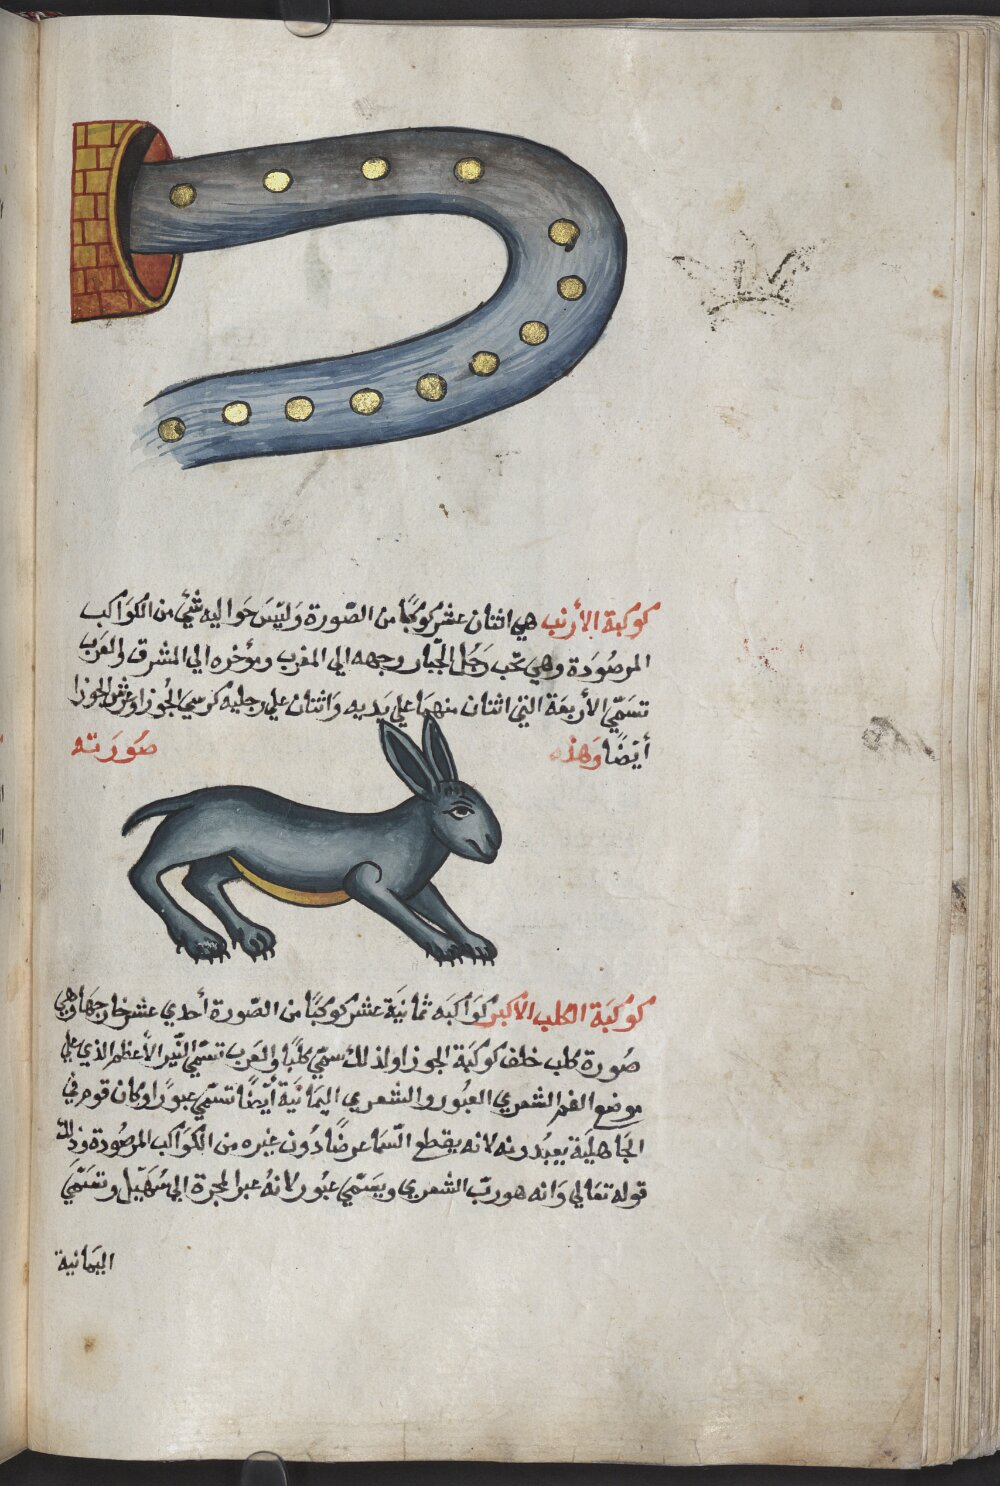 كوكبة الأرنب هي اثنان عشر كوكبًا من الصّورة وَليْسَ حَواليه شئي من الكوَاكب
المرصُودَة وهي تحب رَجُل الجبّار وجهه الي المغرب ومؤخره الي المشرق والعَرب
تسَمّي الأربعَة التي اثنان منهمَا علي يَديه وَاثنان علي رجليه كرسي الجُوزا وعرش الجوزا
أيْضًا وَهذه صُورَته
كوكبَة الكلب الاكبر كوَاكبَه ثمانيَة عشر كوكبًا من الصّورة أحدي عشر خارجهَا وَهي
صُورة كلب خلف كوكبَة الجوزا ولذلك سمّي كلبًا والعَرب تسَمّي النّير الأعظم الذي علي
موضع الفم الشعري العبُور والشعري اليمَانيَة أيْضًا تسَمّي عبورًا وكان قوم في
الجَاهليَة يعبُدونه لانه يقطع السّما عرضًا دُون غيره من الكوَاكب المرصُودة وَذلك
قوله تعَالي وَانه هو ربّ الشعري ويسَمّي عبُور لانهُ عبر المجرة الي سُهَيْل وتسَمّي
اليمَانية